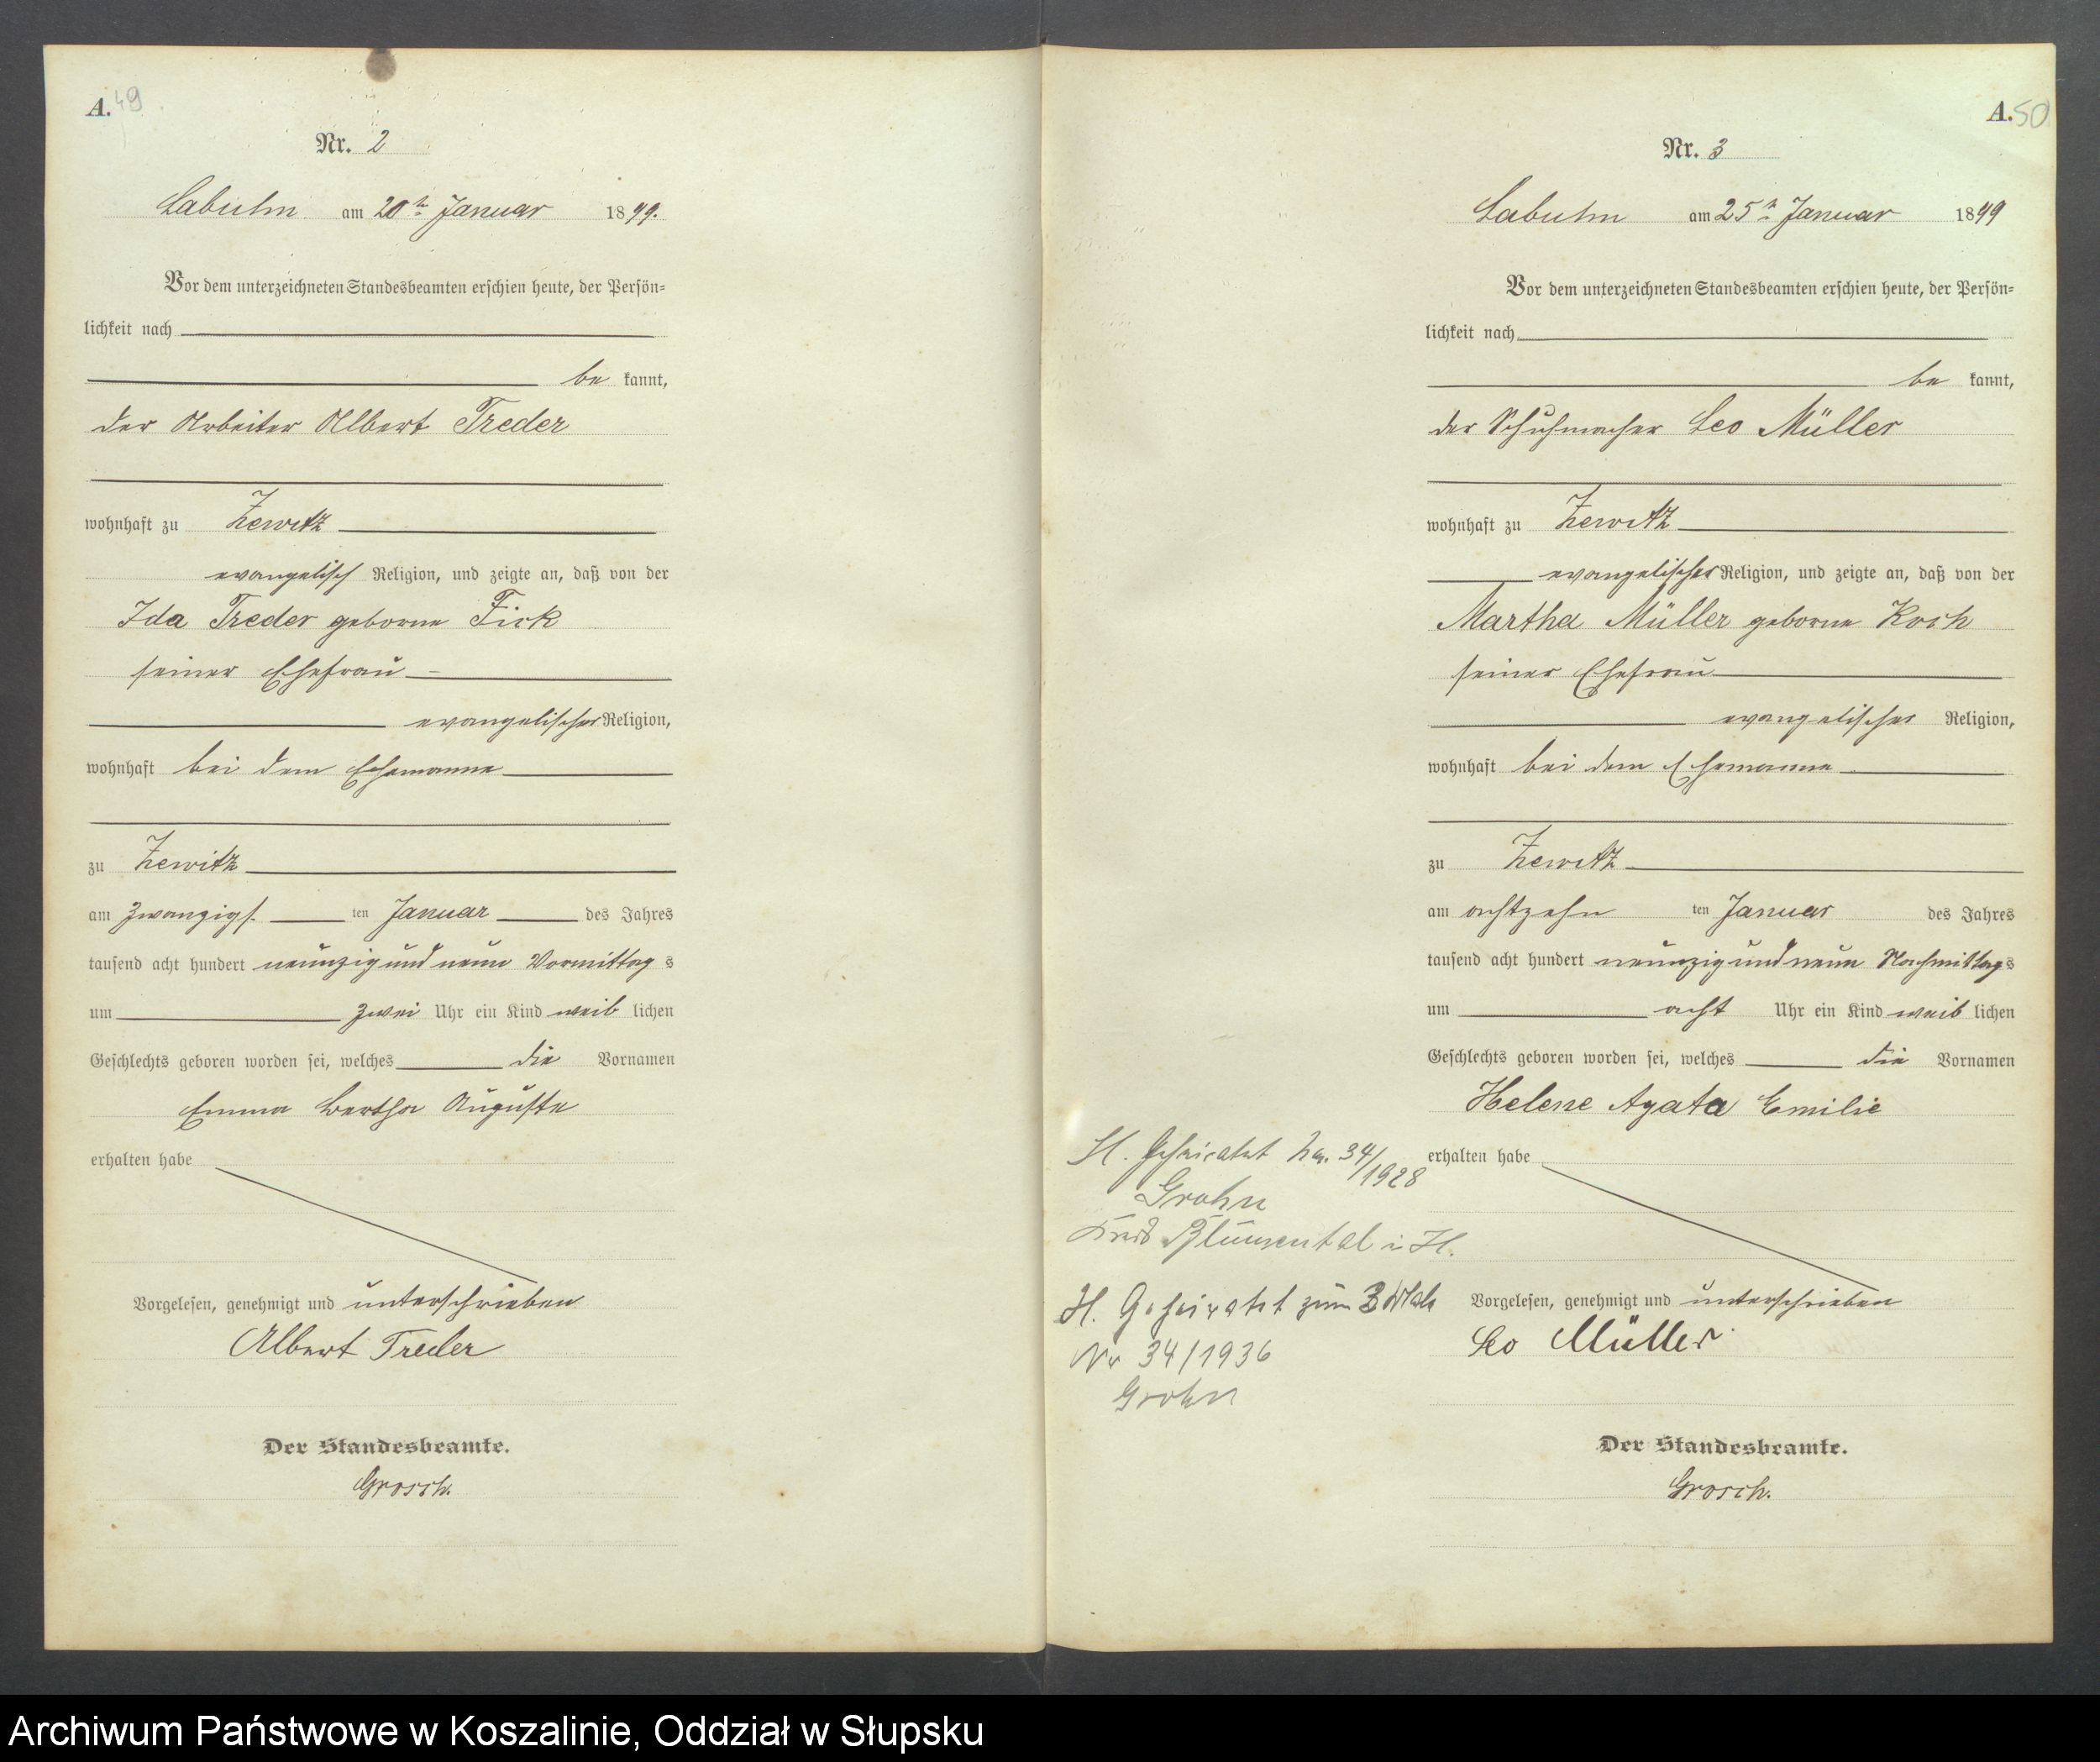 A. 49
Nr. 2
Labuhn am 20ten Januar 1899.
Vor dem unterzeichneten Standesbeamten erschien heute, der Persön=
lichkeit nach
be kannt,
der Arbeiter Albert Treder
wohnhaft zu Zewitz
evangelisch Religion, und zeigte an, daß von der
Ida Treder geborne Fick
seiner Ehefrau
evangelischer Religion,
wohnhaft bei dem Ehemanne
zu Zewitz
am zwanzigs. ten Januar des Jahres
tausend acht hundert neunzig und neun Vormittag s
um zwei Uhr ein Kind weib lichen
Geschlechts geboren worden sei, welches die Vornamen
Emma Bertha Auguste
erhalten habe
Vorgelesen, genehmigt und unterschrieben
Albert Treder
Der Standesbeamte.
Grosch.
A. 50
Nr. 3
Labuhn am 25ten Januar 1899
Vor dem unterzeichneten Standesbeamten erschien heute, der Persön=
lichkeit nach
be kannt,
der Schuhmacher Leo Müller
wohnhaft zu Zewitz
evangelischer Religion, und zeigte an, daß von der
Martha Müller geborne Koch
seiner Ehefrau
evangelischer Religion,
wohnhaft bei dem Ehemanne
zu Zewitz
am achtzehn ten Januar des Jahres
tausend acht hundert neunzig und neun Nachmittags
um acht Uhr ein Kind weib lichen
Geschlechts geboren worden sei, welches die Vornamen
Helene Agata Emilie
erhalten habe
H. Geheiratet Nr. 34/1928
Grohn
Kreis Blumental i. H.
Vorgelesen, genehmigt und unterschrieben
Leo Müller
H. Geheiratet zum 3 Male
Nr 34/1936
Grohn
Der Standesbeamte.
Grosch.
Archiwum Państwowe w Koszalinie, Oddział w Słupsku